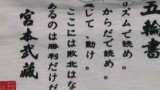 五輪書
リズムで読め。
からだで読め。
感じて、動け。
ここには敗北はな
あるのは勝利だけだ
宮本武蔵